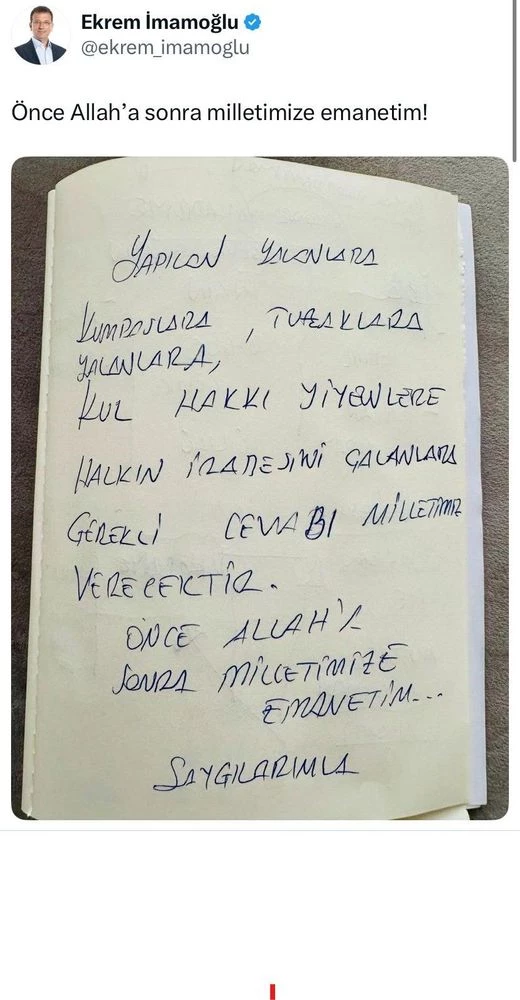 Ekrem İmamoğlu
@ekrem_imamoglu
Önce Allah'a sonra milletimize emanetim!
YAPILAN YALANLARA
KUMPASLARA, TUZAKLARA
YALANLARA,
KUL HAKKI YİYENLERE
HALKIN İRADESİNİ ÇALANLARA
GEREKLİ CEVABI MİLLETİMİZ
VERECEKTİR.
ÖNCE ALLAH'A
SONRA MİLLETİMİZE
EMANETİM...
SAYGILARIMLA